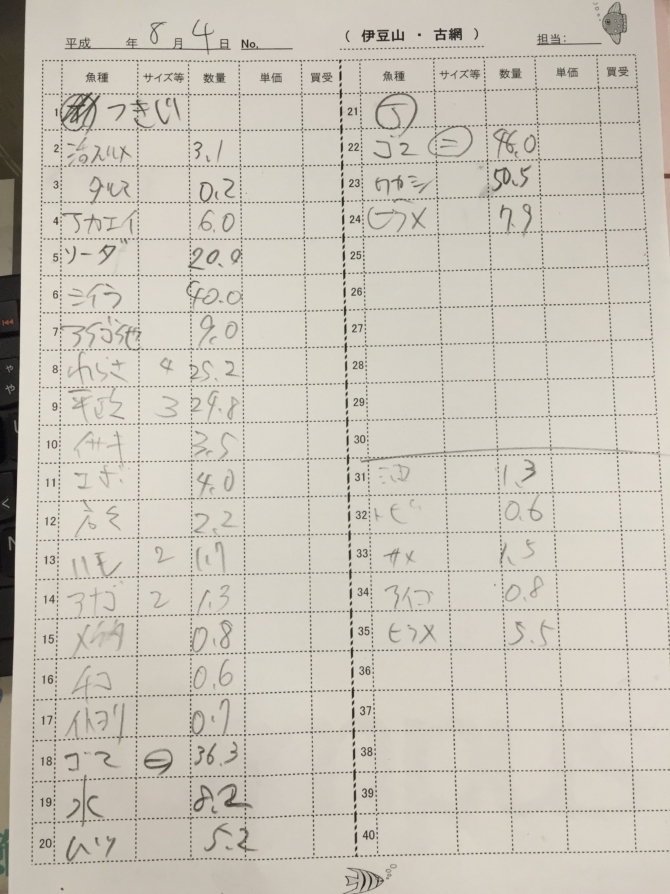 平成 年 8 月 4 日 No.
( 伊豆山 ・ 古網 )
担当:
魚種 サイズ等 数量 単価 買受
1 つきじ
2 活スルメ 3.1
3 タルマ 0.2
4 アカエイ 6.0
5 ソーダ 20.0
6 シイラ 40.0
7 アイゴ 9.0
8 わらさ 4 25.2
9 平政 3 29.8
10 イサキ 3.5
11 エボ 4.0
12 2.2
13 ハモ 2 1.7
14 アナゴ 2 1.3
15 0.8
16 0.6
17 イトヨリ 0.7
18 ゴマ ㊀ 36.3
19 水 8.2
20 ムツ 5.2
魚種 サイズ等 数量 単価 買受
21
22 ゴマ ㊁ 46.0
23 ワカシ 50.5
24 7.9
25
26
27
28
29
30
31 1.3
32 トビ 0.6
33 サメ 1.5
34 アイゴ 0.8
35 ヒラメ 5.5
36
37
38
39
40